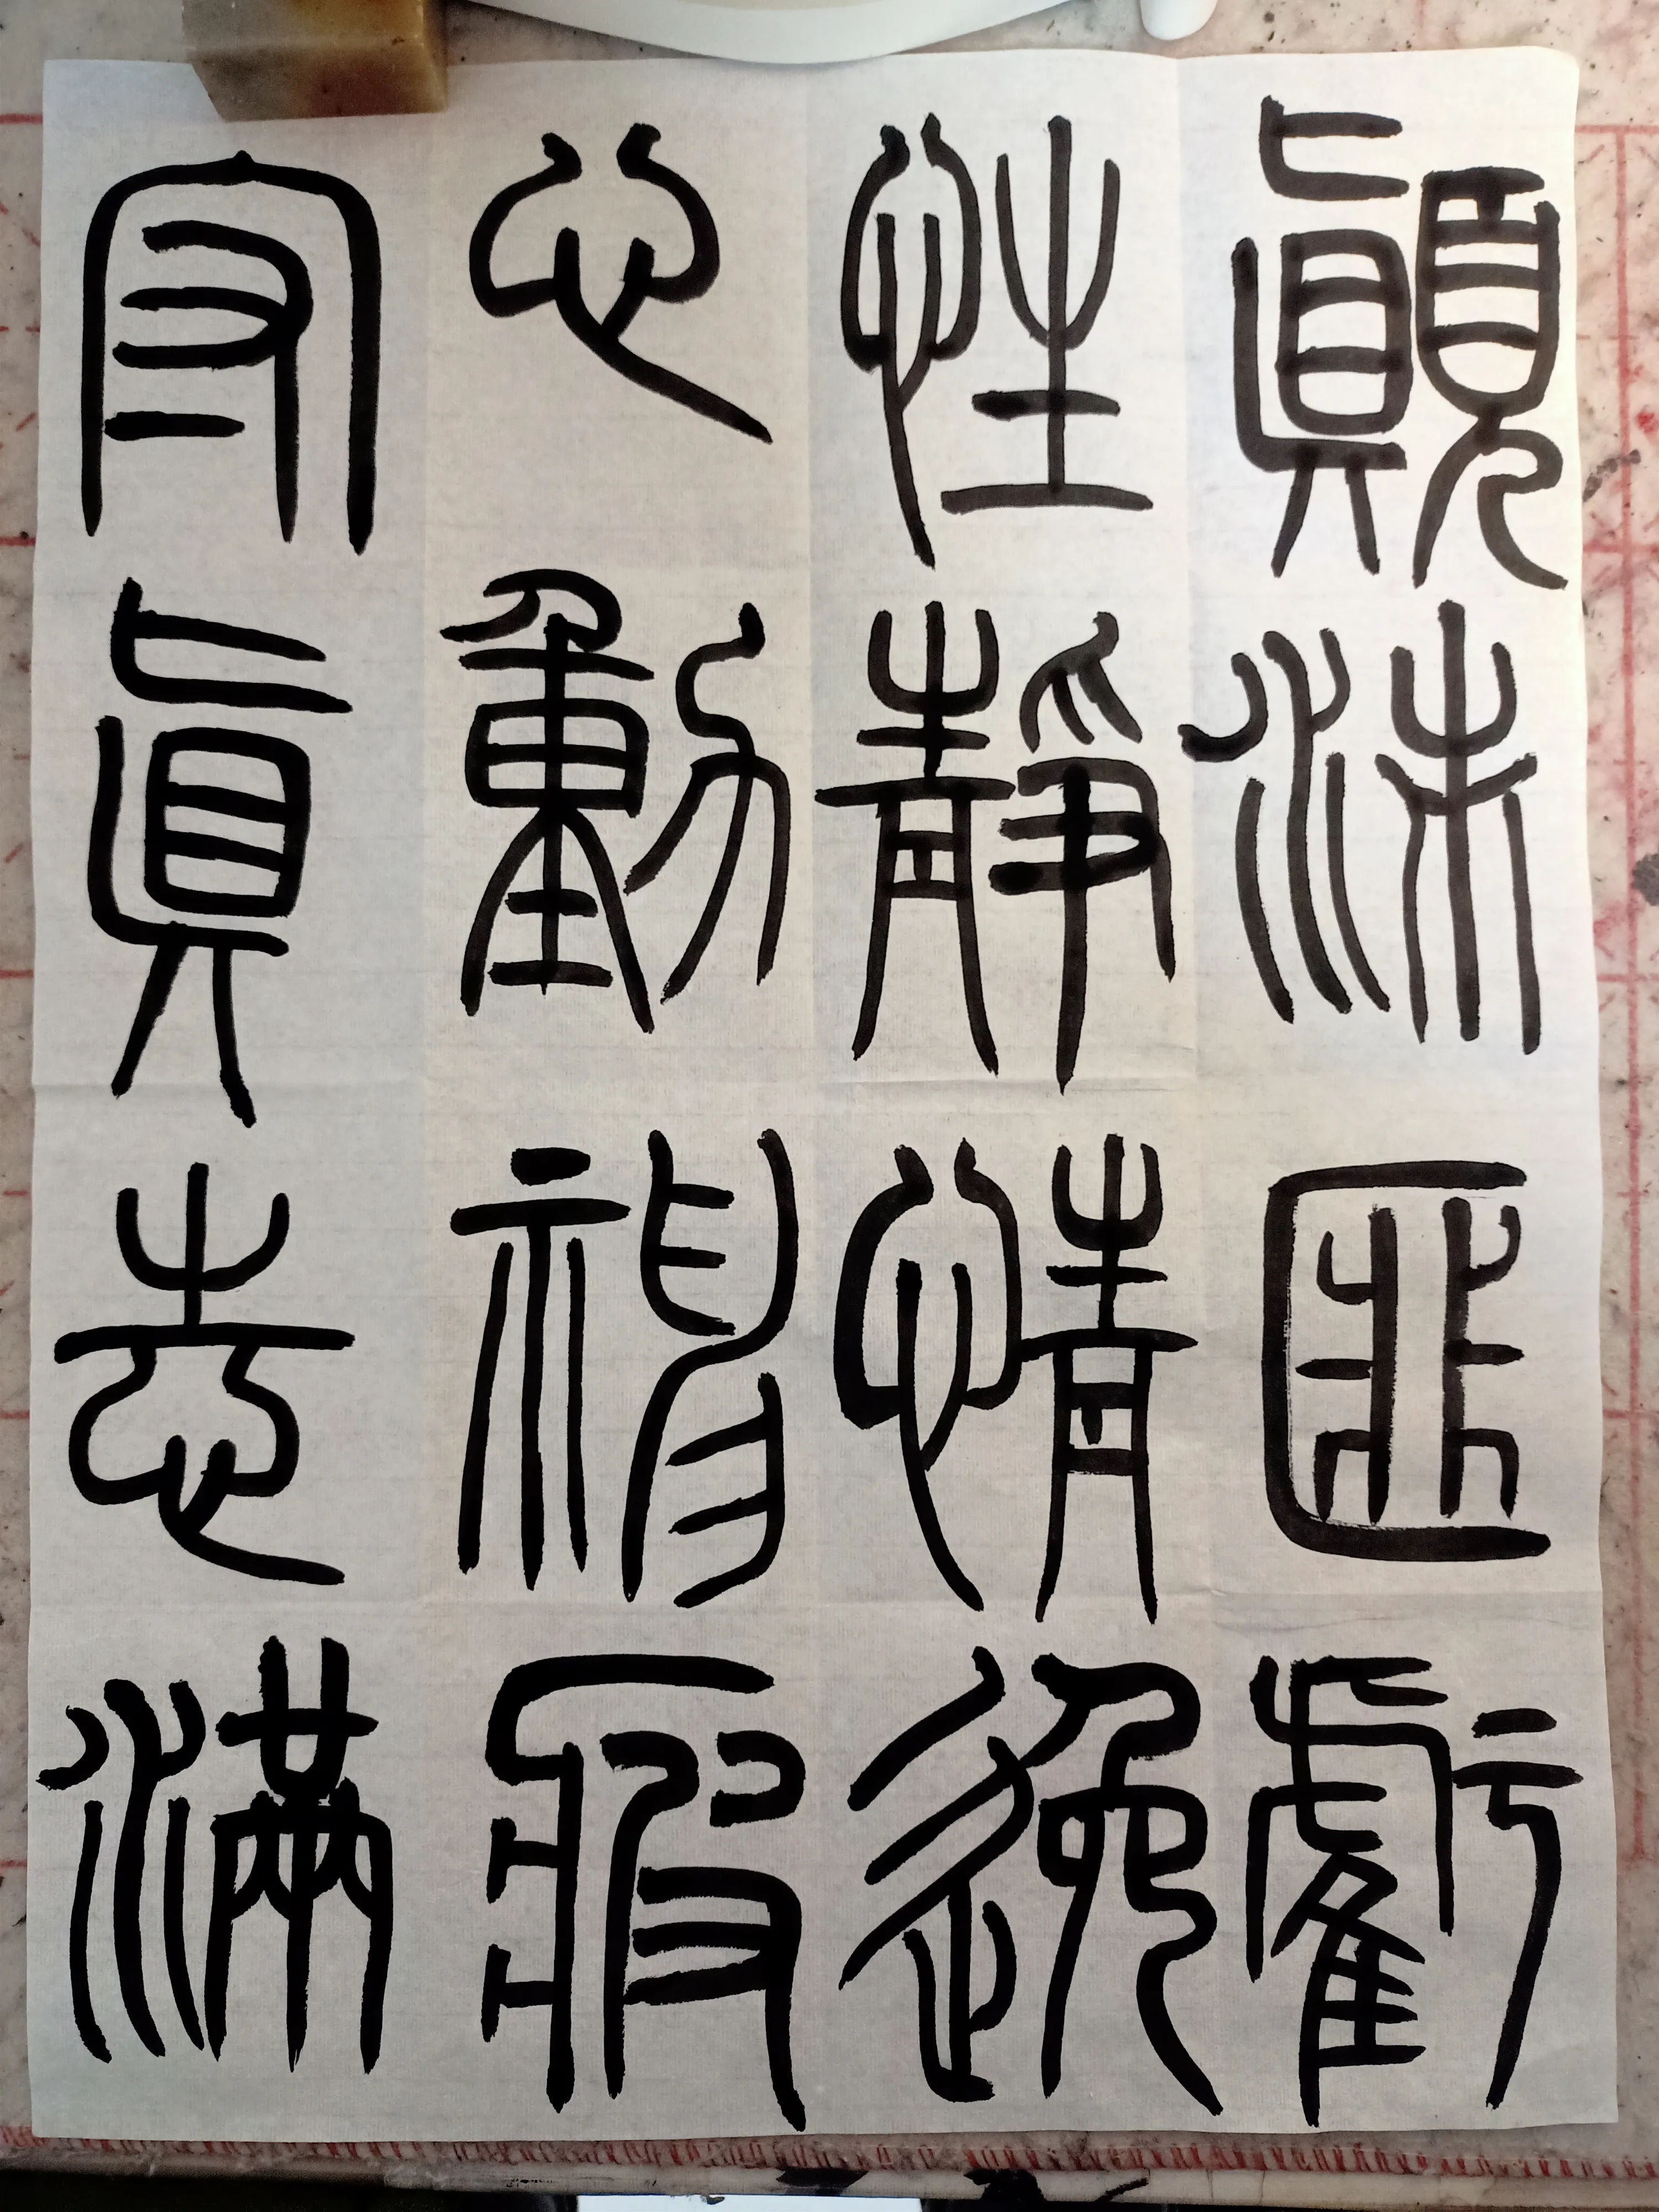 顛沛匪虧
性靜情逸
心動神疲
守真志滿